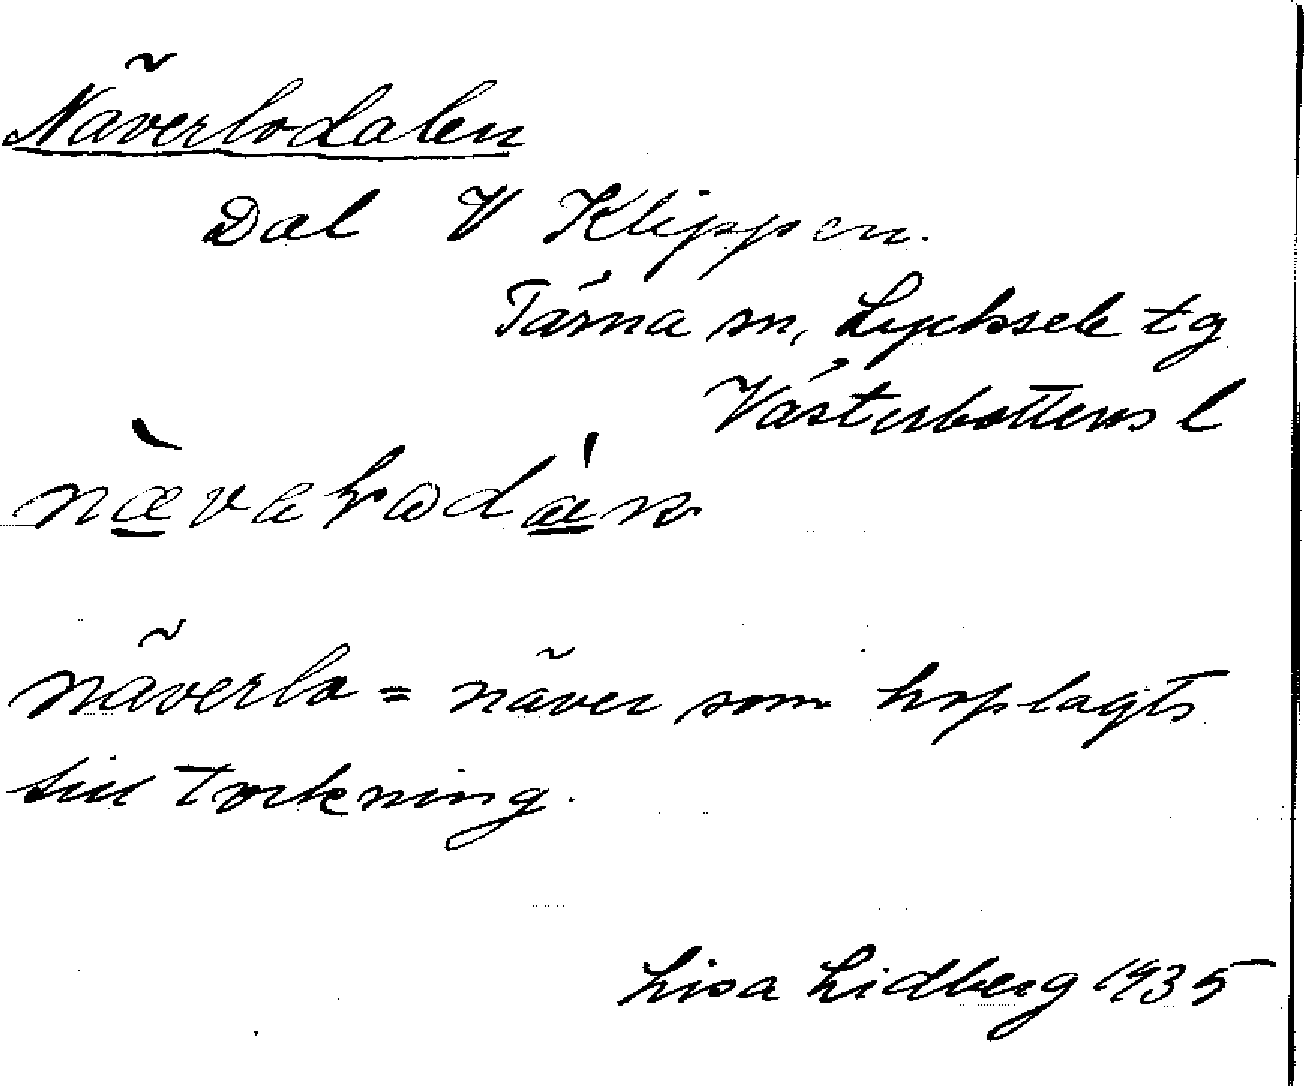 Näverlodalen
Dal V Klippen.
Tärna sn, Lycksele tg
Västerbottens l
näverlo = näver som hoplagts
till torkning.
Lisa Lidberg 1935